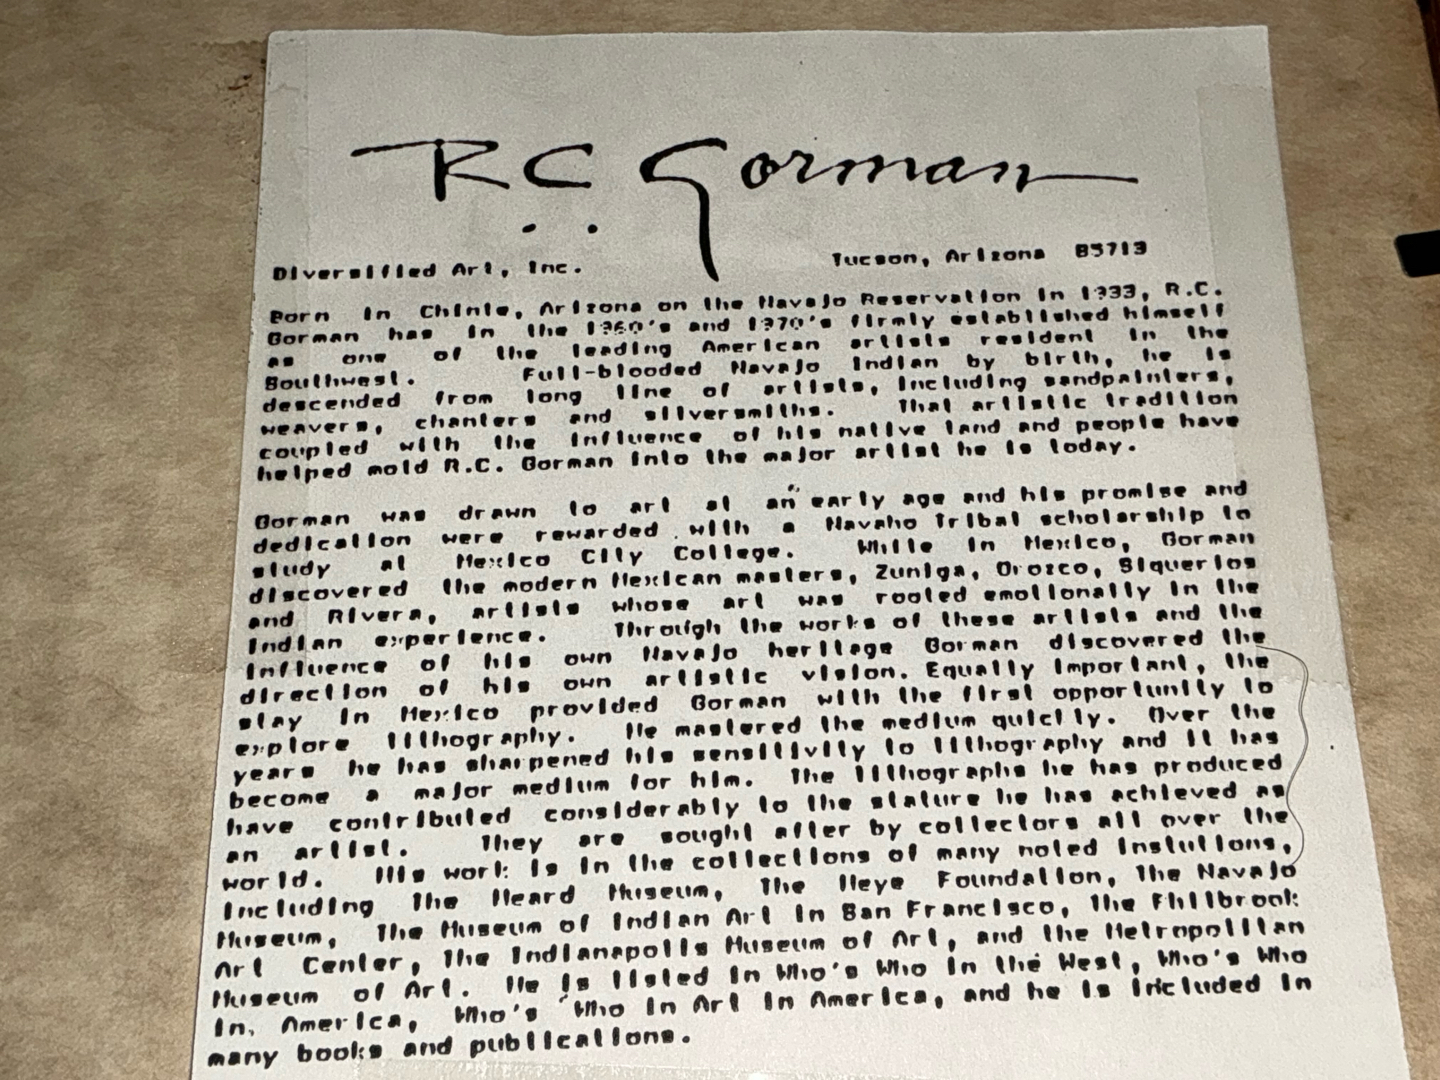 R.C. Gorman
Diversified Art, Inc.
Tucson, Arizona 85713
Born in Chinle, Arizona on the Navajo Reservation in 1933, R.C.
Gorman has in the 1960's and 1970's firmly established himself
as one of the leading American artists resident in the
Southwest. Full-blooded Navajo Indian by birth, he is
descended from long line of artists, including sandpainters,
weavers, chanters and silversmiths. That artistic tradition
coupled with the influence of his native land and people have
helped mold R.C. Gorman into the major artist he is today.
Gorman was drawn to art at an early age and his promise and
dedication were rewarded with a Navaho Tribal scholarship to
study at Mexico City College. While in Mexico, Gorman
discovered the modern Mexican masters, Zuniga, Orozco, Siquerios
and Rivera, artists whose art was rooted emotionally in the
Indian experience. Through the works of these artists and the
influence of his own Navajo heritage Gorman discovered the
direction of his own artistic vision. Equally important, the
stay in Mexico provided Gorman with the first opportunity to
explore lithography. He mastered the medium quickly. Over the
years he has sharpened his sensitivity to lithography and it has
become a major medium for him. The lithographs he has produced
have contributed considerably to the stature he has achieved as
an artist. They are sought after by collectors all over the
world. His work is in the collections of many noted instutions,
including the Heard Museum, The Heye Foundation, the Navajo
Museum, The Museum of Indian Art in San Francisco, the Philbrook
Art Center, the Indianapolis Museum of Art, and the Metropolitan
Museum of Art. He is listed in Who's Who in the West, Who's Who
in America, Who's Who in Art in America, and he is included in
many books and publications.